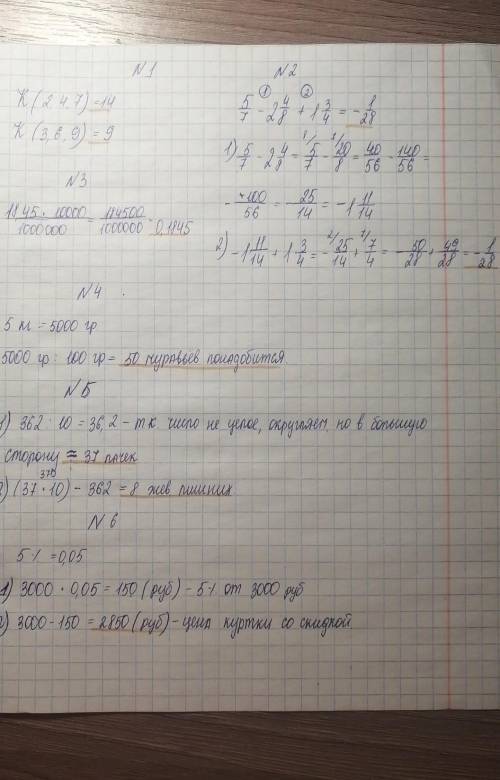 N1
К(2 4. 7) = 14
К(3, 6, 9) = 9
N2
5/7 - 2 4/8 + 1 3/4 = - 1/28
1) 5/7 - 2 4/8 = 5/7 - 20/8 = 40/56 - 140/56 =
- 100/56 = 25/14 = - 1 11/14
2) - 1 11/14 + 1 3/4 = - 25/14 + 7/4 = - 50/28 + 49/28 = - 1/28
N3
1845 · 10000/1000000 = 184500/1000000 = 0,1845
N4
5 кг = 5000 гр
5000 гр : 100 гр = 50 муравьев понадобится
N5
1) 362 : 10 = 36,2 - т.к. число не целое, округляем, но в большую
сторону ≈ 37 пачек
370
2) (37 · 10) - 362 = 8 жев лишних
N6
5% = 0,05
1) 3000 · 0,05 = 150 (руб) - 5% от 3000 руб
2) 3000 - 150 = 2850 (руб) - цена куртки со скидкой